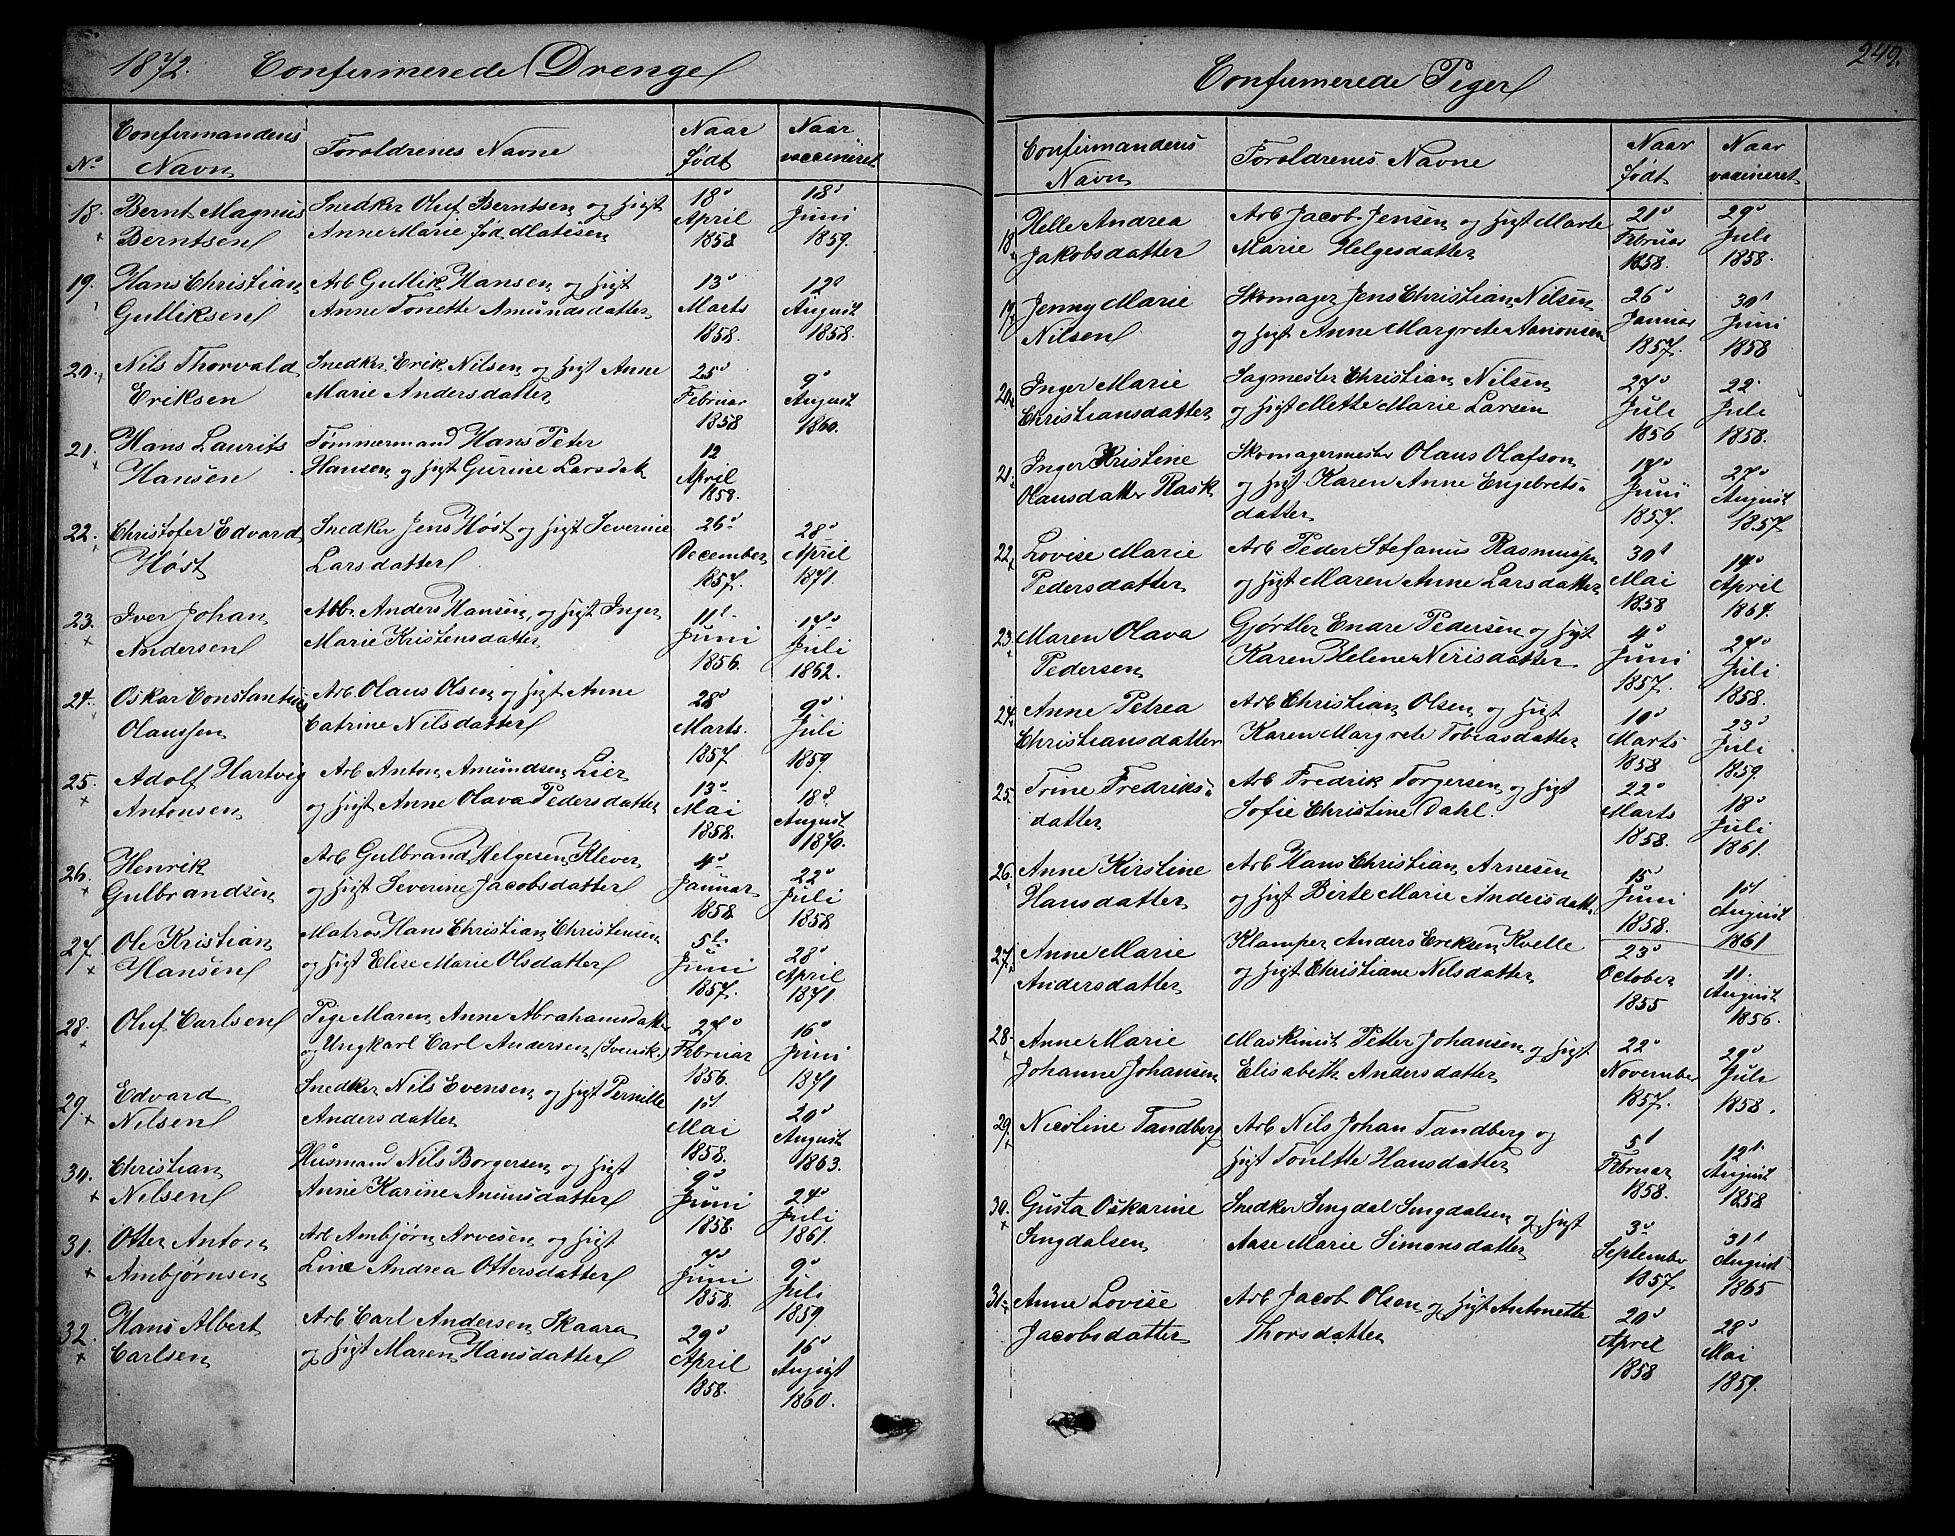 1872. Confirmerede Drenge
No
Confirmandens
Navn
Foreldrenes Navne
Naar
født
Naar
vaccineret
18.
Bernt Magnus
Berntsen
Snedker Oluf Berntsen og Higt
Anne Marie fød Matisen
18d
April
1858
18d
Juni
1859.
19.
Hans Christian
Gulliksen
Arb Gullik Hansen og Higt
Anne Tonette Amundsdatter
13d
Marts
1858.
12d
August
1858.
20.
Nils Thorvald
Eriksen
Snedker Erik Nilsen og Higt Anne
Marie Andersdatter
25d
Februar
1858
9d
August
1860.
21.
Hans Laurits
Hansen
Tømmermand Hans Peter
Hansen og Higt Gurine Larsdat
12
April
1858.
22.
Christofer Edvard
Høst
Snedker Jens Høst og Higt Severine
Larsdatter
26d
December
1857.
28d
April
1871.
23.
Iver Johan
Andersen
Arb. Anders Hansen og Higt Inger
Marie Kristensdatter
11t
Juni
1856.
17d
Juli
1862.
24.
Oskar Constantius
Olaussen
Arb Olaus Olsen og Higt Anne
Catrine Nilsdatter
28d
Marts.
1857
9d
Juli
1859.
25.
Adolf Hartvig
Antonsen
Arb Anton Amundsen Lier
og Higt Anne Olava Pedersdatter
13d
Mai
1858.
18d
August
1870.
26.
Henrik
Gulbrandsen
Arb Gulbrand Helgesen Klever
og Higt Severine Jacobsdatter
4d
Januar
1858.
22d
Juli
1858
27.
Ole Kristian
Hansen
Matros Hans Christian Christensen
og Higt Elise Marie Olsdatter
5t
Juni
1857.
28d
April
1871.
28.
Oluf Carlsen
Pige Maren Anne Abrahamsdatter
og Ungkarl Carl Andersen (Svensk.)
27d
Februar
1856.
16d
Juni
1871
29.
Edvard
Nilsen
Snedker Nils Evensen og Higt Pernille
Andersdatter
1st
Mai
1858.
20d
August
1863.
30.
Christian
Nilsen
Husmand Nils Borgersen og Higt
Anne Karine Anunsdatter
9d
Juni
1858.
24d
Juli
1861.
31.
Otter Anton
Ambjørnsen
Arb Ambjørn Arvesen og Higt
Line Andrea Ottersdatter
7d
Juni
1858.
9d
Juli
1859.
32.
Hans Albert
Carlsen
Arb Carl Andersen Skaara
og Higt Maren Hansdatter
29d
April
1858.
16d
August
1860.
249.
Confirmerede Piger
Confirmandens
Navn
Foroldrenes Navne
Naar
født
Naar
vaccineret
18
Helle Andrea
Jakobsdatter
Arb Jacob Jensen og Higt Marte
Marie Helgesdatter
21d
Februar
1858.
29d
Juli
1858.
19
Jenny Marie
Nilsen
Skomager Jens Christian Nilsen
og Higt Anne Margrete Aamonsen
26d
Januar
1857.
30t
Juni
1858
20
Inger Marie
Christiansdatter
Sagmester Christian Nilsen
og Higt Mette Marie Larsen
27d
Juli
1856
22.
Juli
1858.
21
Inger Kristine
Olausdatter Rask
Skomagermester Olaus Olafson
og Higt Karen Anne Engebrets-
datter
17d
Juni
1857.
27d
August
1857.
22
Lovise Marie
Pedersdatter
Arb Peder Stefanus Rasmussen
og Higt Maren Anne Larsdatter
30t
Mai
1858
14d
April
1864.
23.
Maren Olava
Pedersen
Gjørtler Enare Pedersen og Higt
Karen Helene Nirisdatter
4d
Juni
1857.
24d
Juli
1858.
24
Anne Petrea
Christiansdatter
Arb Christian Olsen og Higt
Karen Margrete Tobiasdatter
10d
Marts
1858
23d
Juli
1859.
25.
Trine Fredriks-
datter
Arb Fredrik Torgersen og Higt
Sofie Christine Dahl.
22d
Marts
1858.
18d
Juli
1861.
26.
Anne Kirstine
Hansdatter
Arb Hans Christian Arnesen
og Higt Birte Marie Andersdatt.
15d
Juni
1858.
1st
August
1861
27.
Anne Marie
Andersdatter
Klamper Anders Eriksen Kvelle
og Higt Christiane Nilsdatter
23d
October
1855
11.
August
1856.
28.
Anne Marie
Johanne Johansen
Maskinist Petter Johansen og Higt
Elisabeth Andersdatter
22d
November
1857.
29d
Juli
1858.
29
Nicoline Tandberg
Arb Nils Johan Tandberg og
Higt Tonette Hansdatter
5t
Februar
1858.
12t
August
1858
30.
Gusta Oskarine
Singdalsen
Snedker Singdal Singdalsen og Higt
Aase Marie Simonsdatter
3d
September
1857.
31t
August
1865
31.
Anne Lovise
Jacobsdatter
Arb Jacob Olsen og Higt Antonette
Thorsdatter
20d
April
1858
28d
Mai
1859.